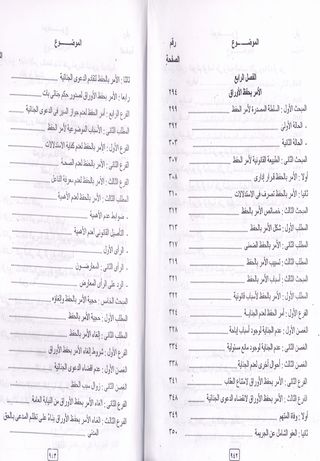 الموضــــوع
رقم الصفحة
الفصل الرابع
الأمر بحفظ الأوراق ٢٩٤
المبحث الأول : السلطة المصدرة لأمر الحفظ ٢٩٩
- الحالة الأولى ٢٩٢
- الحالة الثانية ٣٠٣
المبحث الثاني : الطبيعة القانونية لأمر الحفظ ٣٠٧
أولا : الأمر بالحفظ قرار إدارى ٣٠٨
ثانيا : الأمر بالحفظ تصرف فى الاستدلالات ٣١٠
المبحث الثالث : خصائص الأمر بالحفظ ٣١٢
المطلب الأول : شكل الأمر بالحفظ ٣١٣
المطلب الثانى : الأمر بالحفظ الضمنى ٣١٧
المطلب الثالث : تسبيب الأمر بالحفظ ٣١٩
المبحث الثالث : أسباب الأمر بالحفظ ٣٢١
المطلب الأول : الأمر بالحفظ لأسباب قانونية ٣٢٢
الفرع الأول : أمر الحفظ لعدم الجناية ٣٢٤
الغصن الأول : عدم الجناية لوجود أسباب إباحة ٣٢٨
الغصن الثانى : عدم الجناية لوجود مانع مسئولية ٣٣٤
الغصن الثالث : أحوال أخرى لعدم الجناية ٣٣٨
الفرع الثانى : الأمر بحفظ الأوراق لامتناع العقاب ٣٤١
الفرع الثالث : الأمر بحفظ الأوراق لانقضاء الدعوى الجنائية ٣٤٨
أولا : وفاة المتهم ٣٤٩
ثانيا : العفو الشامل عن الجريمة ٣٥٠
الموضــــوع
ثالثا : الأمر بالحفظ لتقادم الدعوى الجنائية
رابعا : الأمر بحفظ الأوراق لصدور حكم جنائى بات
الفرع الرابع : أمر الحفظ لعدم جواز السير فى الدعوى الجنائية
المطلب الثانى : الأسباب الموضوعية لأمر الحفظ
الفرع الأول : الأمر بالحفظ لعدم كفاية الاستدلالات
الفرع الثانى : الأمر بالحفظ لعدم الصحة
الفرع الثالث : الأمر بالحفظ لعدم معرفة الفاعل
المطلب الثالث : الأمر بالحفظ لعدم الأهمية
- ضوابط عدم الأهمية
- التأصيل القانونى لعدم الأهمية
- الرأى الأول
- الرأى الثانى : المعارضون
- الرد على الرأى المعارض
المبحث الخامس : حجية الأمر بالحفظ والغاؤه
المطلب الأول : حجية الأمر بالحفظ
المطلب الثانى : إلغاء الأمر بالحفظ
الفرع الأول : شروط إلغاء الأمر بحفظ الأوراق
الغصن الأول : عدم انقضاء الدعوى الجنائية
الغصن الثانى : زوال سبب الحفظ
الفرع الثانى : الغاء الأمر بحفظ الأوراق من النيابة العامة
الفرع الثالث : الغاء الأمر بحفظ الأوراق بناءً على تظلم المدعى بالحق المدنى